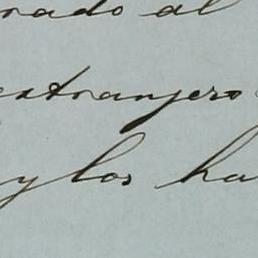 rado al
extranjero
y los ha